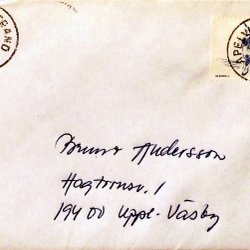 STRAND
KAPELLS
Bruno Andersson
Hagtornsv. 1
194 00 Uppl-Väsby